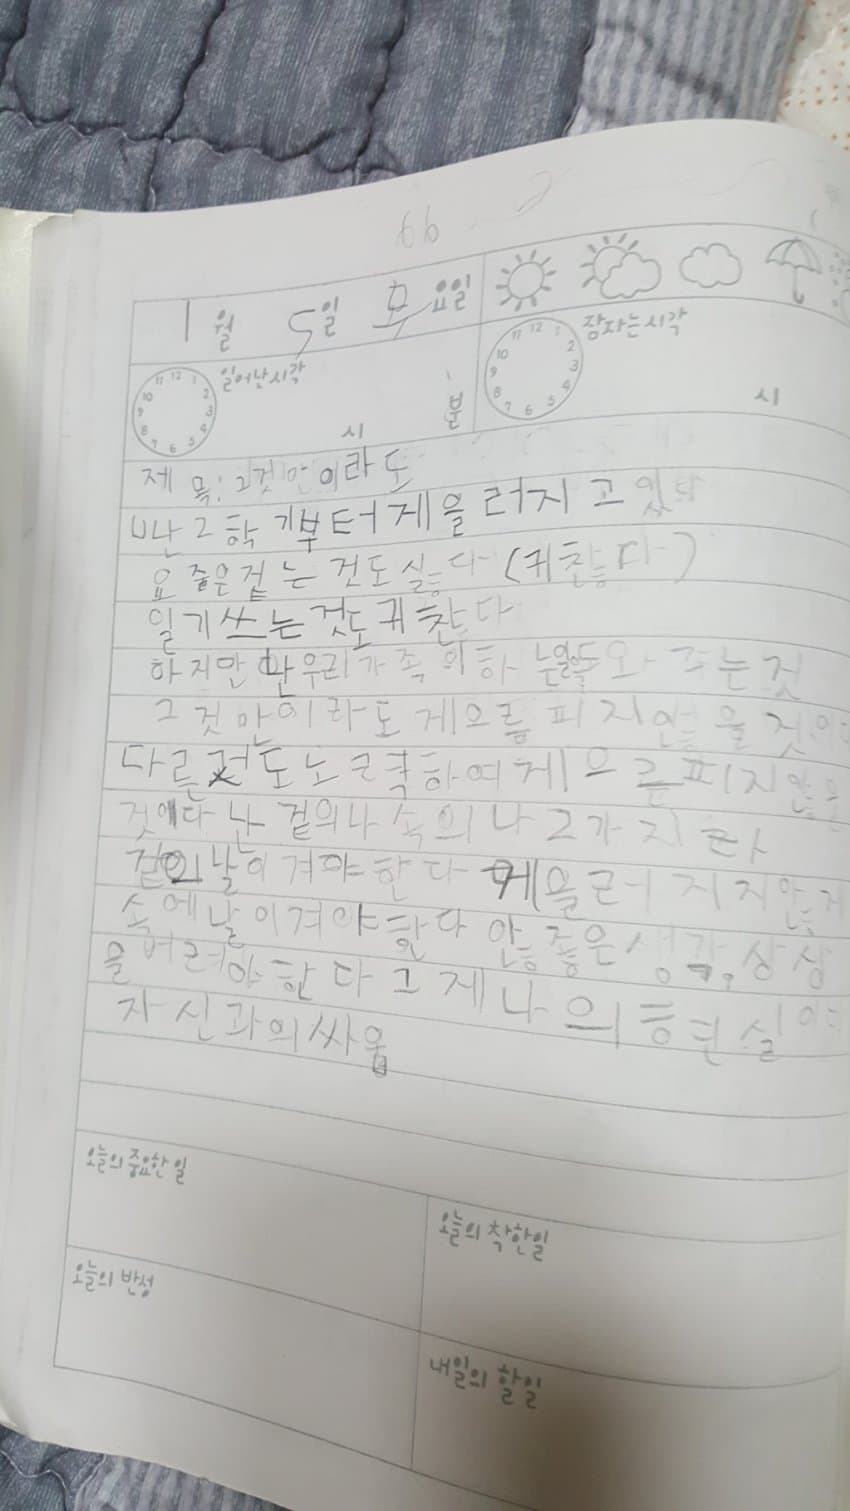 66
1월 5일 모요일
일어난시각 시 분
잠자는시각 시
12 1 2 3 4 5 6 7 8 9 10 11
12 1 2 3 4 5 6 7 8 9 10 11
제 목: 그것만이라도
난 2학기부터 게을러지고 있다
요즘은 는 것도 싫다 (귀찮다)
일기쓰는것도 귀찮다
하지만 난 우리가족의 하 와 주는것
그것만이라도 게으름피지않을것이다
다른것도 노력하여 게으름피지않을
것이다 난 겉의나 속의나 2가지라
겉의 날이겨야한다 게을러지지않게
속에날이겨야한다 안좋은생각,상상
을버려야한다 그게나의 현실이다
자신과의싸움
오늘의 중요한 일
오늘의 착한일
오늘의 반성
내일의 할일